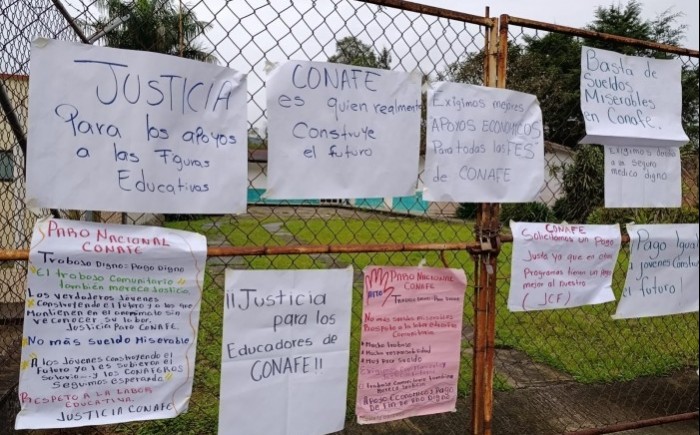 JUSTICIA
Para los apoyos
a las Figuras
Educativas
CONAFE
es quien realmente
Construye
el futuro
Exigimos mejores
APOYOS ECONOMICOS
Para todas las FES
de CONAFE
Basta de
Sueldos
Miserables
en Conafe.
Exigimos
a un seguro
medico digno
PARO NACIONAL
CONAFE
Trabajo Digno: Pago Digno
El trabajo Comunitario
también merece Justicia
Los verdaderos Jóvenes
Construyendo el futuro y a los que
Mantienen en el anonimato sin
reconocer su labor.
Justicia Para CONAFE.
No más sueldo Miserable
A los Jóvenes Construyendo el
Futuro ya les subieron el
Salario... y los CONAFEROS
Seguimos esperando
RESPETO A LA LABOR
EDUCATIVA.
JUSTICIA CONAFE
¡¡Justicia
para los
Educadores de
CONAFE!!
PARO NACIONAL
CONAFE
Trabajo Digno
No más
Respeto a la labor
Comunitaria
Mucho trabajo
Mucha responsabilidad
trabajo Comunitario también
CONAFE
Solicitamos un Pago
Justo ya que en otros
Programas tienen un pago
mejor al nuestro
(JCF)
Pago Igual
a jóvenes Construyendo
el futuro!